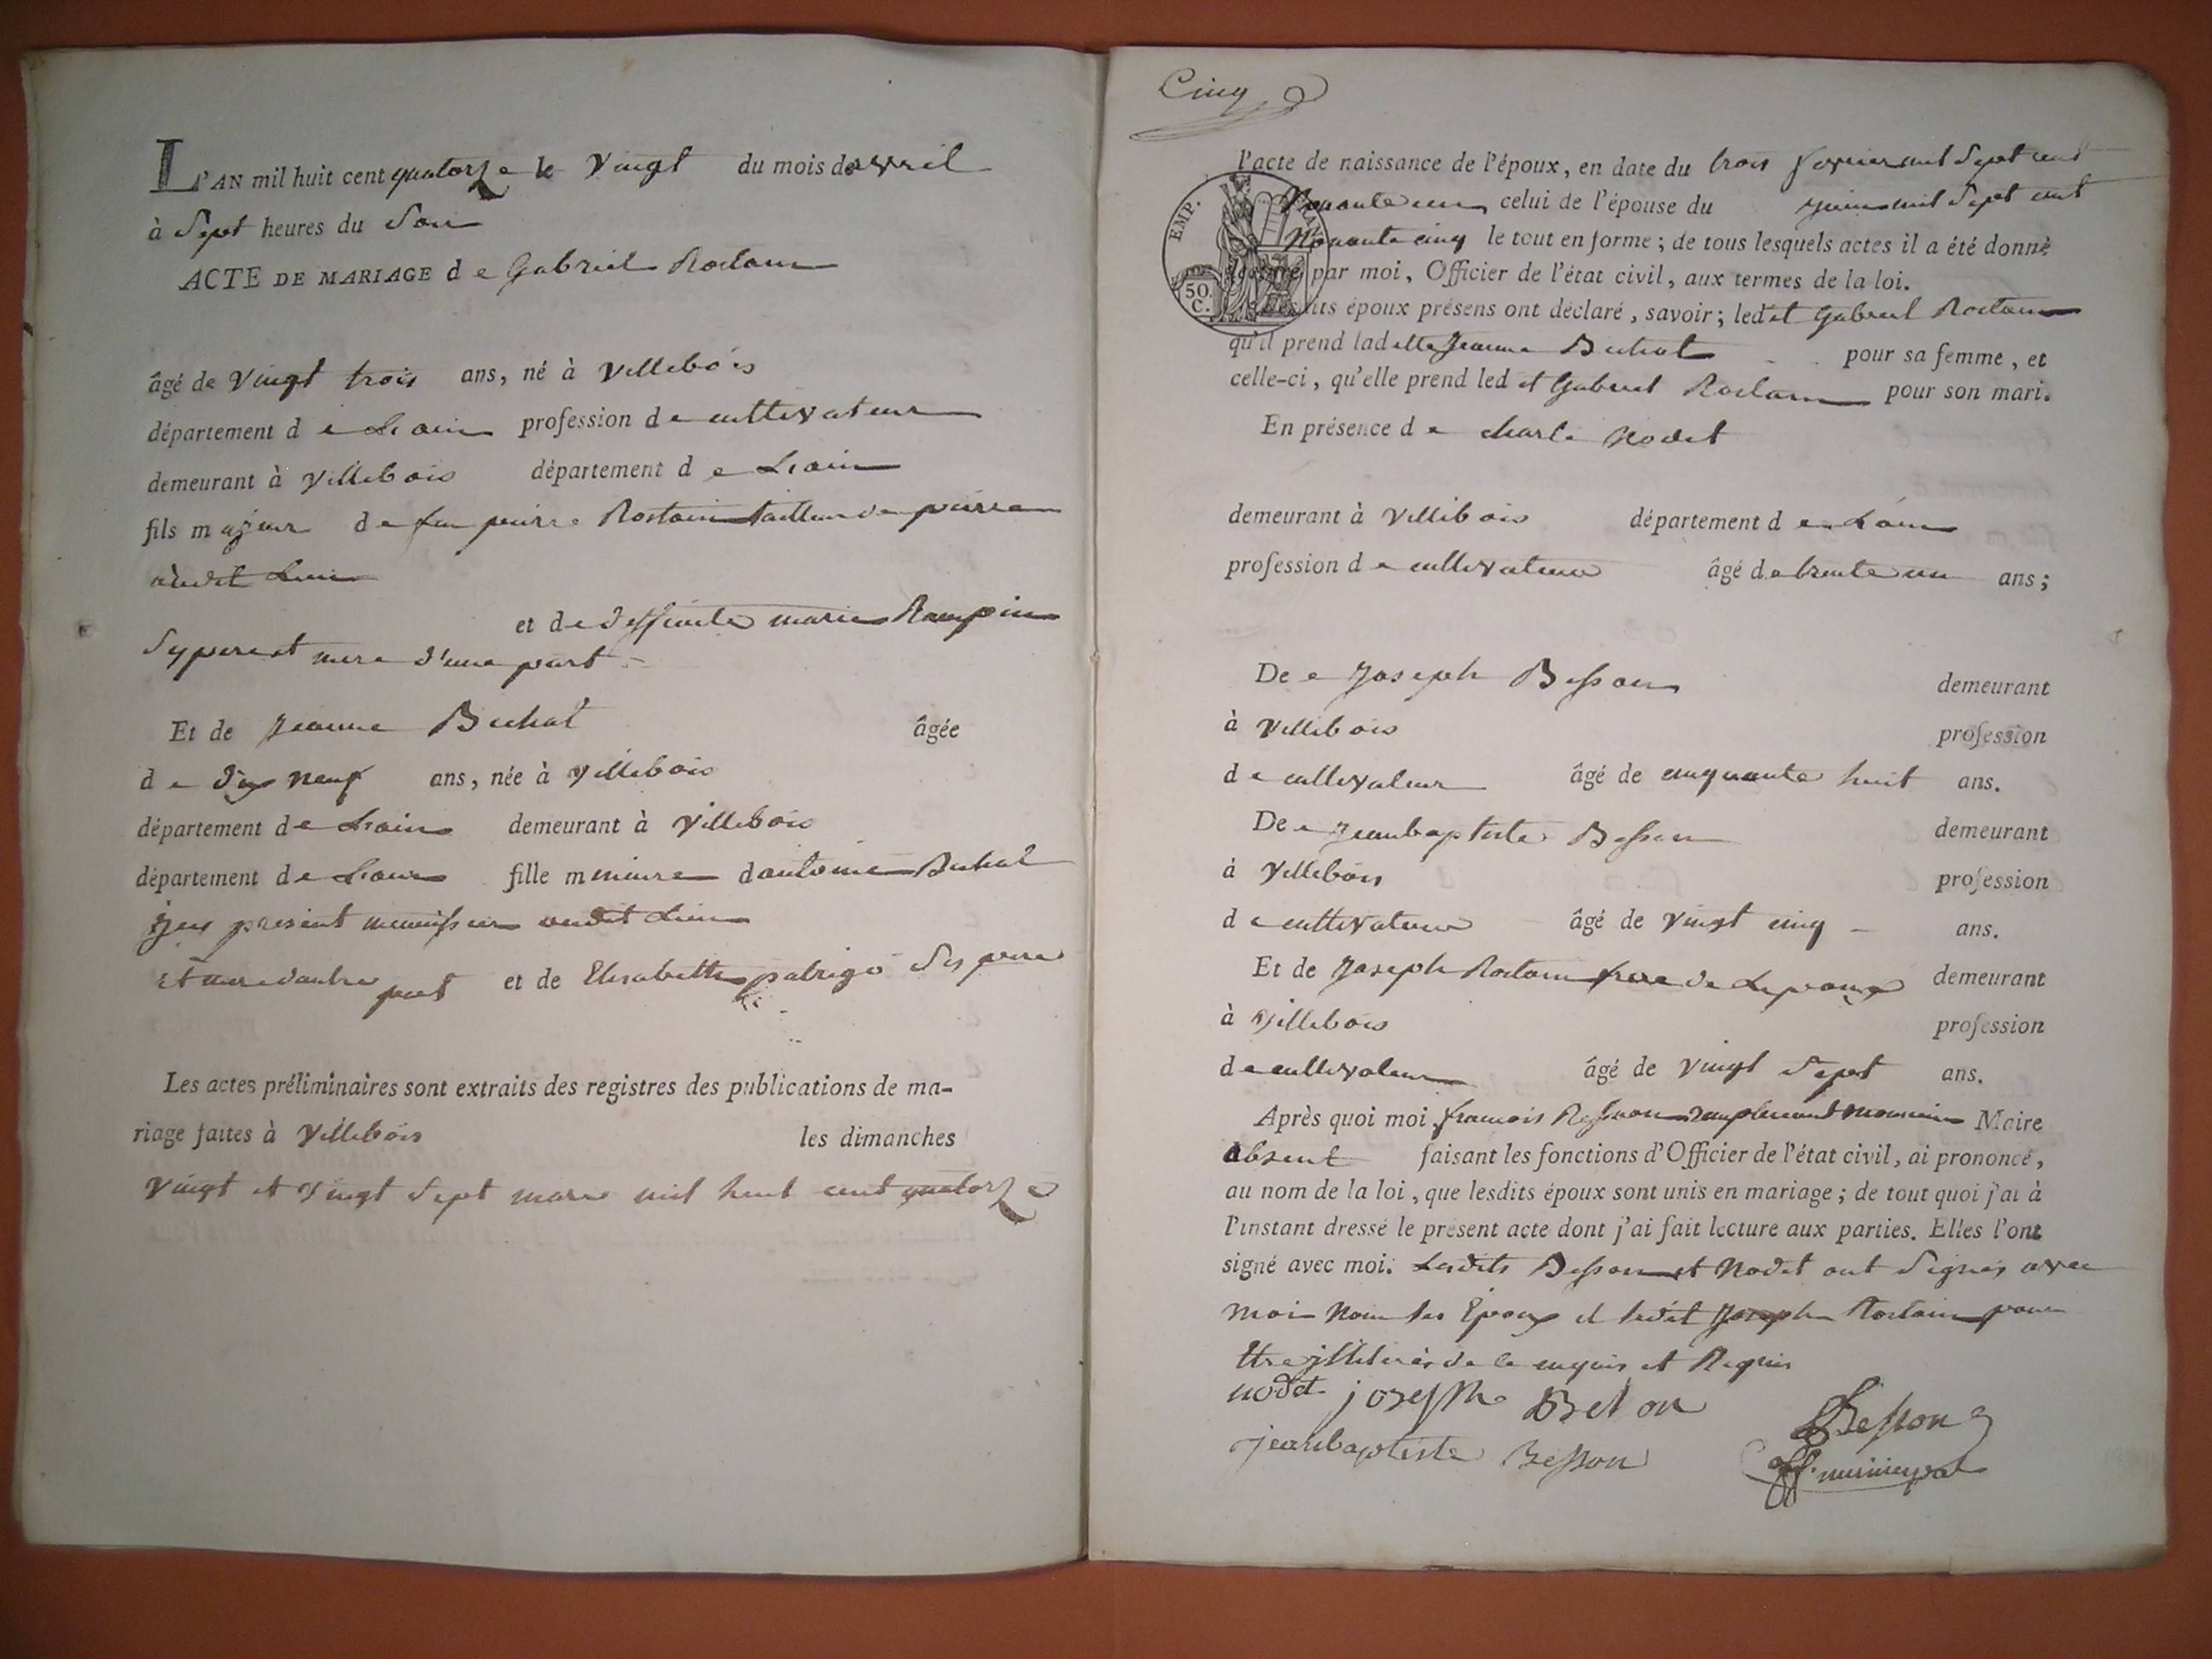 L'AN mil huit cent quatorze le Vingt du mois de avril
à Sept heures du Soir
ACTE DE MARIAGE de Gabriel Rostain
âgé de Vingt trois ans, né à Villebois
département de Lain profession de cultivateur
demeurant à Villebois département de Lain
fils majeur de feu pierre Rostain tailleur de pierre
audit Lieu
et de deffunte marie Rampin
Sy pere et mere d'une part
Et de Jeanne Buhat âgée
de dix neuf ans, née à Villebois
département de Lain demeurant à Villebois
département de Lain fille mineure dantoine Buhat
present menuisier audit Lieu
Et mere dautre part et de Elisabeth patrigo Ses pere
Les actes préliminaires sont extraits des registres des publications de ma-
riage faites à Villebois les dimanches
Vingt et Vingt Sept mars mil huit cent quatorze
Cinq
l'acte de naissance de l'époux, en date du trois Janvier mil Sept cent
Nonante un celui de l'épouse du juin mil Sept cent
Nonante cinq le tout en forme; de tous lesquels actes il a été donné
lecture par moi, Officier de l'état civil, aux termes de la loi.
Lesdits époux présens ont déclaré, savoir; ledit Gabriel Rostain
qu'il prend ladette Jeanne Buhat pour sa femme, et
celle-ci, qu'elle prend ledit Gabriel Rostain pour son mari.
En présence de charle Nodet
demeurant à Villebois département de Lain
profession de cultivateur âgé de trente un ans;
De e Joseph Besson demeurant
à Villebois profession
de cultivateur âgé de cinquante huit ans.
De e Jeanbaptiste Besson demeurant
à Villebois profession
de cultivateur âgé de Vingt cinq ans.
Et de Joseph Rostain frere de Lepoux demeurant
à Villebois profession
de cultivateur âgé de Vingt Sept ans.
Après quoi moi francois Besson remplacant monsieur Maire
absent faisant les fonctions d'Officier de l'état civil, ai prononcé,
au nom de la loi, que lesdits époux sont unis en mariage; de tout quoi j'ai à
l'instant dressé le présent acte dont j'ai fait lecture aux parties. Elles l'ont
signé avec moi. Lesdits Besson et Nodet ont Signés avec
moi Non les Epoux et ledit Joseph Rostain pour
Etre jlliterés de ce enquis et Requis
nodet joseph Beson
Besson
jeanbaptiste Besson
off. municipal
EMP.
50.
C.